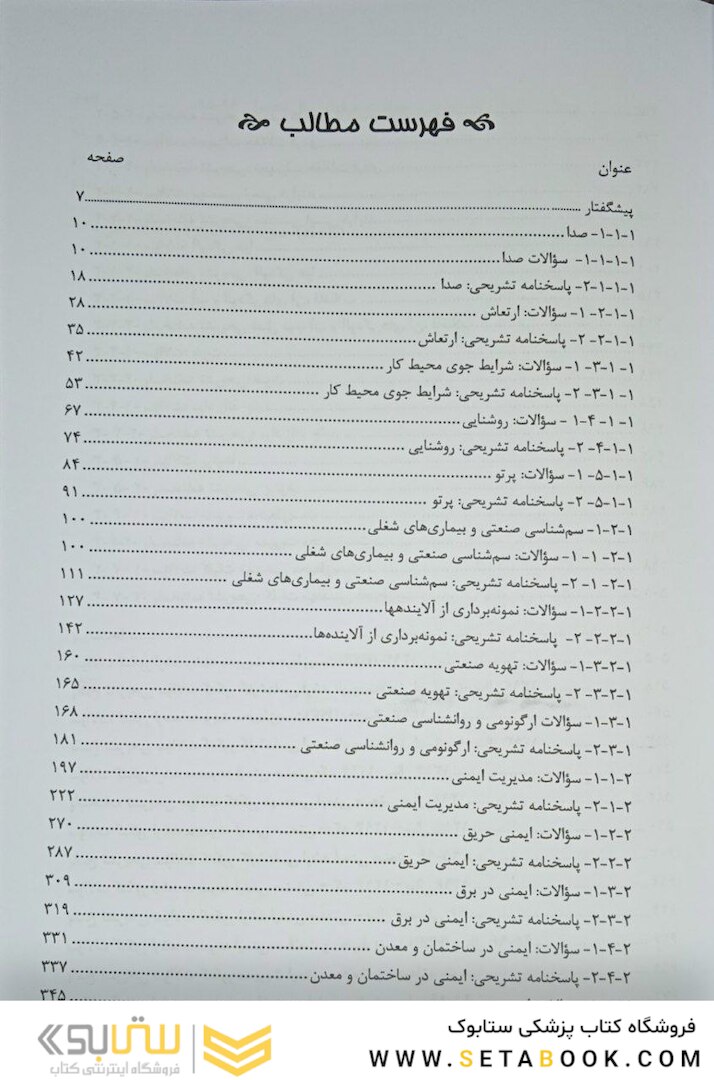 فهرست مطالب
عنوان صفحه
پیشگفتار ۷
۱-۱-۱- صدا ۱۰
۱-۱-۱-۱- سؤالات صدا ۱۰
۱-۱-۱-۲- پاسخنامه تشریحی: صدا ۱۸
۱-۱-۲-۱- سؤالات: ارتعاش ۲۸
۱-۱-۲-۲- پاسخنامه تشریحی: ارتعاش ۳۵
۱-۱-۳-۱- سؤالات: شرایط جوی محیط کار ۴۲
۱-۱-۳-۲- پاسخنامه تشریحی: شرایط جوی محیط کار ۵۳
۱-۱-۴-۱- سؤالات: روشنایی ۶۷
۱-۱-۴-۲- پاسخنامه تشریحی: روشنایی ۷۴
۱-۱-۵-۱- سؤالات: پرتو ۸۴
۱-۱-۵-۲- پاسخنامه تشریحی: پرتو ۹۱
۱-۲-۱- سم‌شناسی صنعتی و بیماری‌های شغلی ۱۰۰
۱-۲-۱-۱- سؤالات: سم‌شناسی صنعتی و بیماری‌های شغلی ۱۰۰
۱-۲-۱-۲- پاسخنامه تشریحی: سم‌شناسی صنعتی و بیماری‌های شغلی ۱۱۱
۱-۲-۲-۱- سؤالات: نمونه‌برداری از آلایندهها ۱۲۷
۱-۲-۲-۲- پاسخنامه تشریحی: نمونه‌برداری از آلاینده‌ها ۱۴۲
۱-۲-۳-۱- سؤالات: تهویه صنعتی ۱۶۰
۱-۲-۳-۲- پاسخنامه تشریحی: تهویه صنعتی ۱۶۵
۱-۳-۱- سؤالات ارگونومی و روانشناسی صنعتی ۱۶۸
۱-۳-۲- پاسخنامه تشریحی: ارگونومی و روانشناسی صنعتی ۱۸۱
۲-۱-۱- سؤالات: مدیریت ایمنی ۱۹۷
۲-۱-۲- پاسخنامه تشریحی: مدیریت ایمنی ۲۲۲
۲-۲-۱- سؤالات: ایمنی حریق ۲۷۰
۲-۲-۲- پاسخنامه تشریحی: ایمنی حریق ۲۸۷
۲-۳-۱- سؤالات: ایمنی در برق ۳۰۹
۲-۳-۲- پاسخنامه تشریحی: ایمنی در برق ۳۱۹
۲-۴-۱- سؤالات: ایمنی در ساختمان و معدن ۳۳۱
۲-۴-۲- پاسخنامه تشریحی: ایمنی در ساختمان و معدن ۳۳۷
۳۴۵
فروشگاه کتاب پزشکی ستابوک
WWW.SETABOOK.COM
ستابوک
فروشگاه اینترنتی کتاب